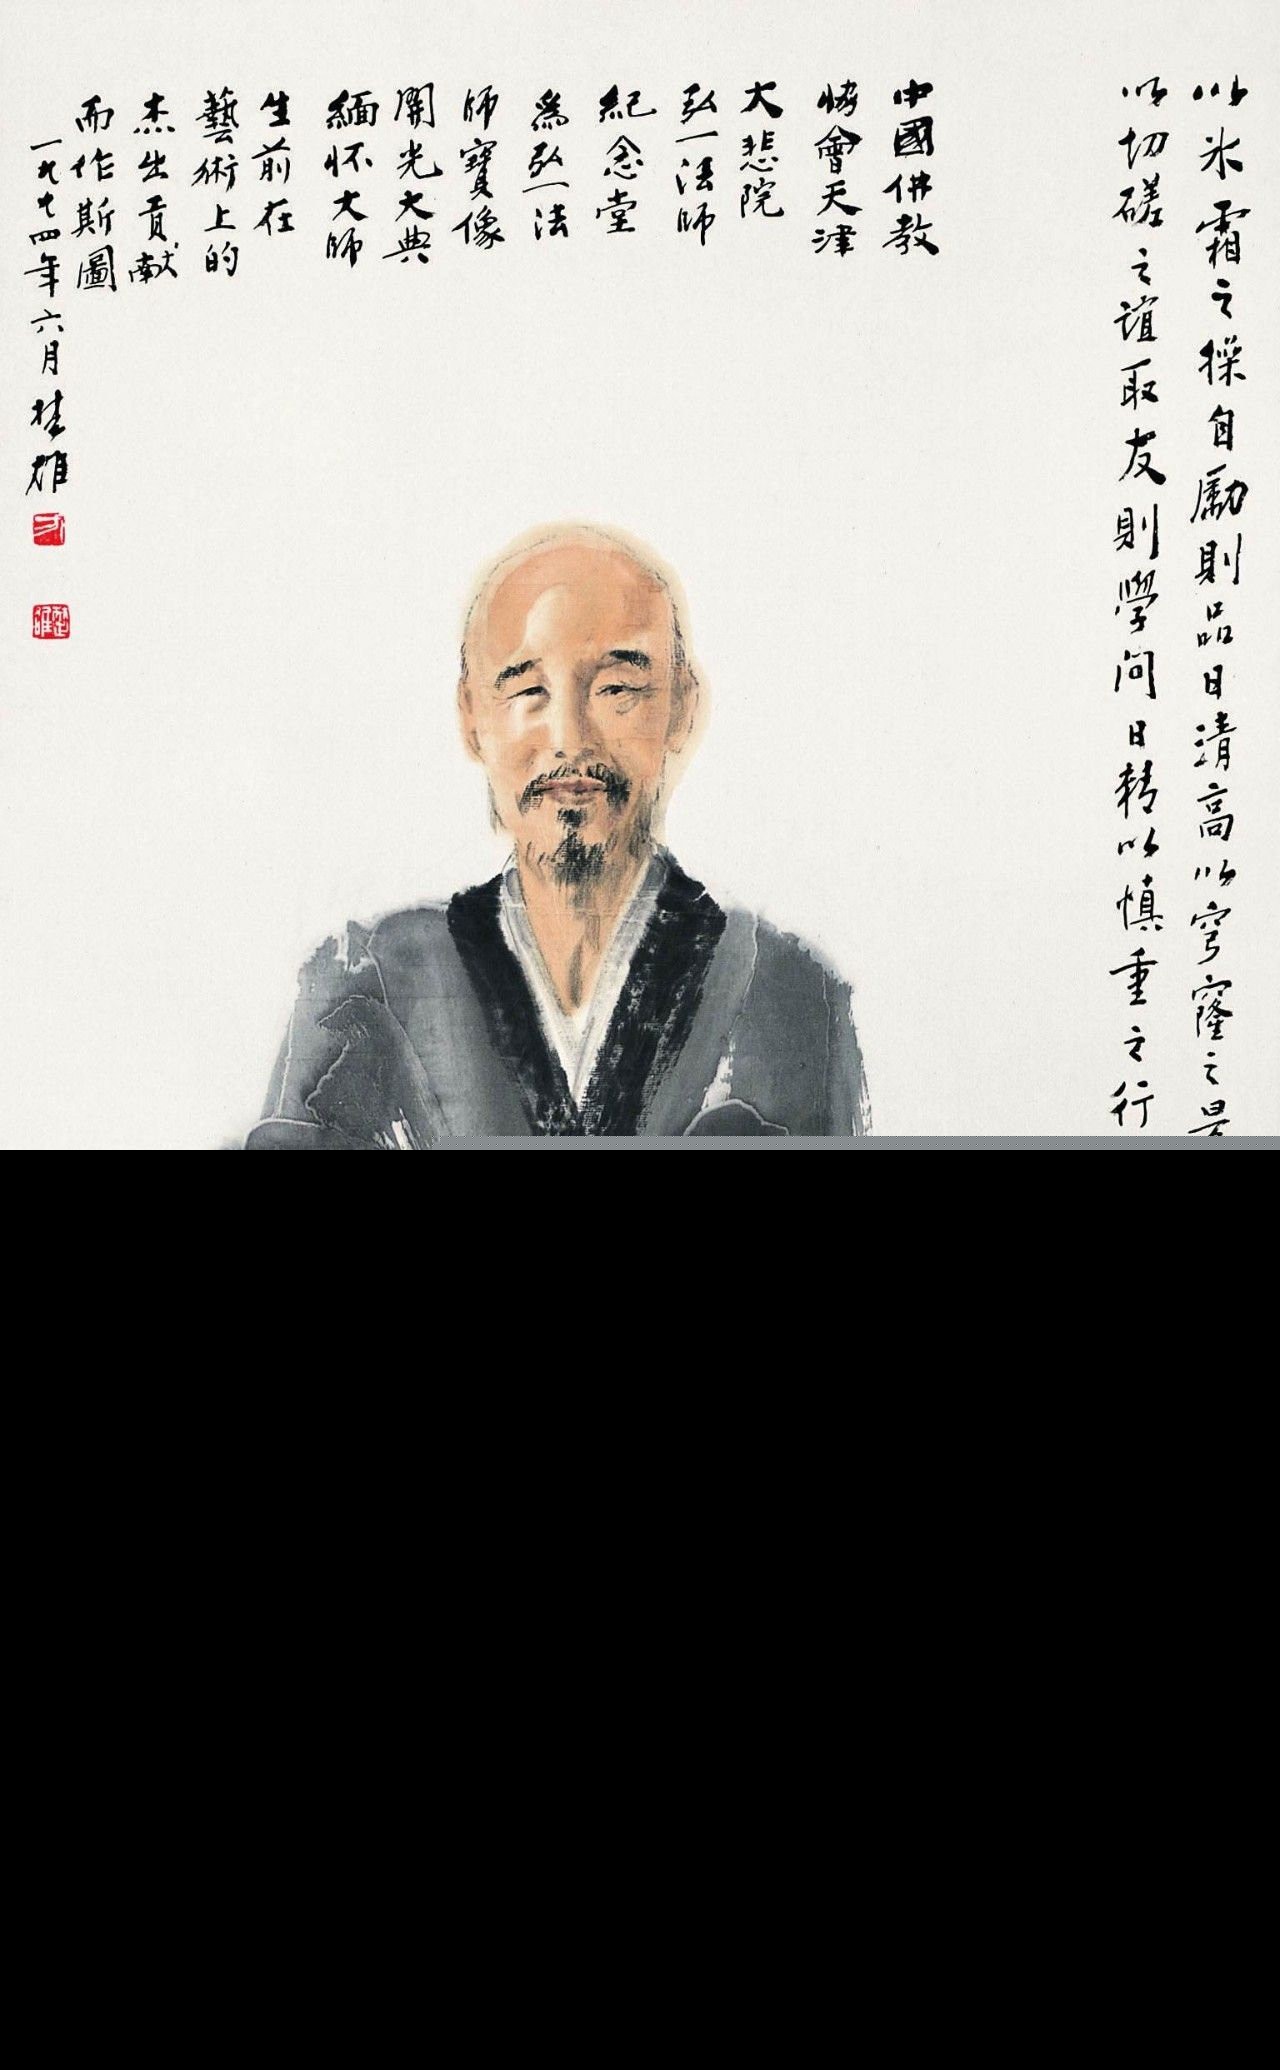 以氷霜之操自勵則品日清高以穹窿之
以切磋之誼取友則學問日精以慎重之行
中國佛教
協會天津
大悲院
弘一法師
紀念堂
爲弘一法
師寶像
開光大典
緬怀大師
生前在
藝術上的
杰出貢献
而作斯圖
一九九四年六月楚雄
方
楚雄